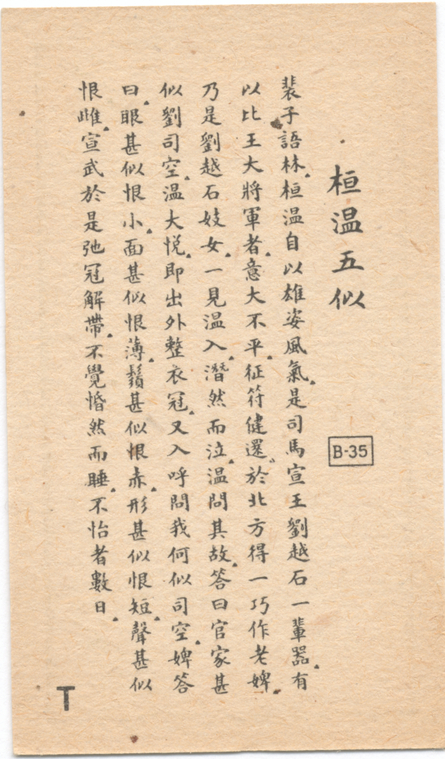 桓溫五似
B-35
裴子語林。桓溫自以雄姿風氣。是司馬宣王劉越石一輩器。有
以比王大將軍者。意大不平。征符健還。於北方得一巧作老婢。
乃是劉越石妓女。一見溫入。潛然而泣。溫問其故。答曰官家甚
似劉司空。溫大悅。即出外整衣冠。又入呼問我何似司空。婢答
曰。眼甚似恨小。面甚似恨薄。鬚甚似恨赤。形甚似恨短。聲甚似
恨雌。宣武於是弛冠解帶。不覺惛然而睡。不怡者數日。
T